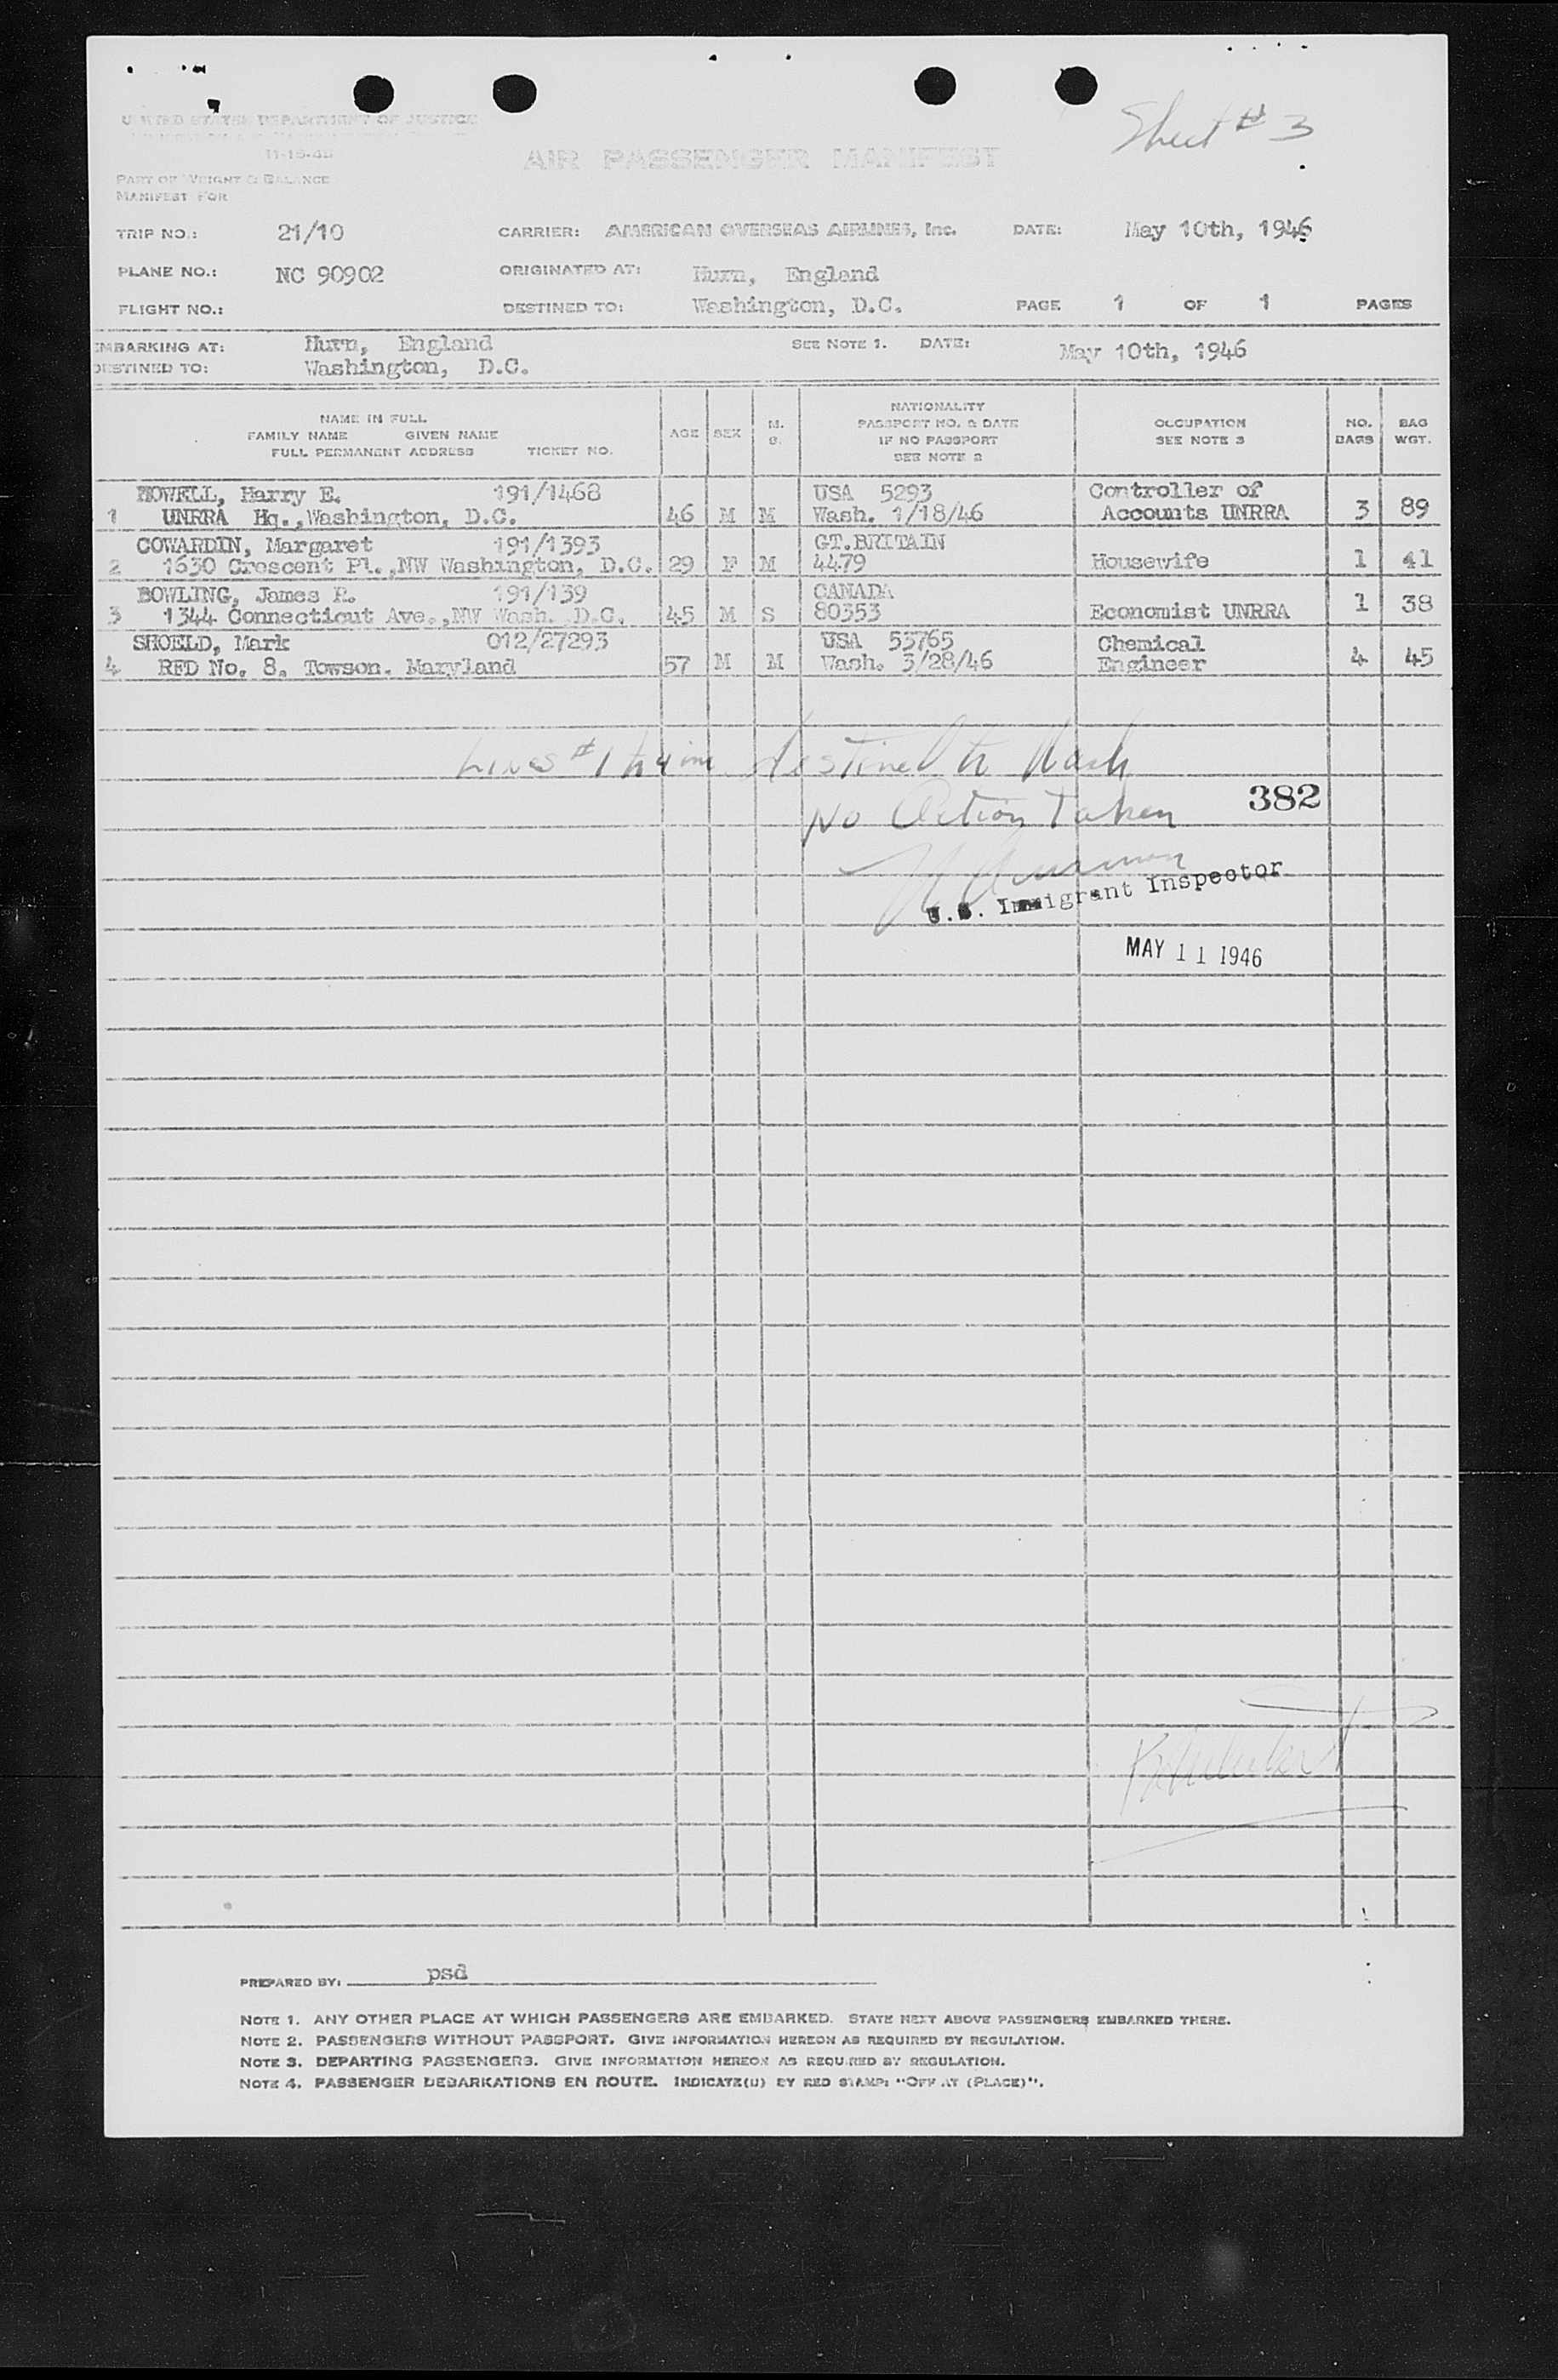 Sheet # 3
UNITED STATES DEPARTMENT OF JUSTICE
11-15-45
AIR PASSENGER MANIFEST
PART OF WEIGHT & BALANCE
MANIFEST FOR
TRIP NO.: 21/10 CARRIER: AMERICAN OVERSEAS AIRLINES, Inc. DATE: May 10th, 1946
PLANE NO.: NC 90902 ORIGINATED AT: Hurn, England
FLIGHT NO.: DESTINED TO: Washington, D.C. PAGE 1 OF 1 PAGES
EMBARKING AT: Hurn, England SEE NOTE 1. DATE: May 10th, 1946
DESTINED TO: Washington, D.C.
NAME IN FULL
FAMILY NAME GIVEN NAME
FULL PERMANENT ADDRESS TICKET NO.
AGE SEX M. S.
NATIONALITY
PASSPORT NO. & DATE
IF NO PASSPORT
SEE NOTE 2
OCCUPATION
SEE NOTE 3
NO. BAGS
BAG WGT.
HOWELL, Harry E. 191/1468 USA 5293 Controller of
1 UNRRA Hq.,Washington, D.C. 46 M M Wash. 1/18/46 Accounts UNRRA 3 89
COWARDIN, Margaret 191/1393 GT.BRITAIN
2 1630 Crescent Pl.,NW Washington, D.C. 29 F M 4479 Housewife 1 41
BOWLING, James R. 191/139 CANADA
3 1344 Connecticut Ave.,NW Wash. D.C. 45 M S 80353 Economist UNRRA 1 38
SHOELD, Mark 012/27293 USA 53765 Chemical
4 RFD No. 8, Towson. Maryland 57 M M Wash. 3/28/46 Engineer 4 45
Lines # 1 to 4 inc destined to Wash
No Action Taken 382
U.S. Immigrant Inspector
MAY 11 1946
PREPARED BY: psd
NOTE 1. ANY OTHER PLACE AT WHICH PASSENGERS ARE EMBARKED. STATE NEXT ABOVE PASSENGERS EMBARKED THERE.
NOTE 2. PASSENGERS WITHOUT PASSPORT. GIVE INFORMATION HEREON AS REQUIRED BY REGULATION.
NOTE 3. DEPARTING PASSENGERS. GIVE INFORMATION HEREON AS REQUIRED BY REGULATION.
NOTE 4. PASSENGER DEBARKATIONS EN ROUTE. INDICATE(D) BY RED STAMP: "OFF AT (PLACE)".